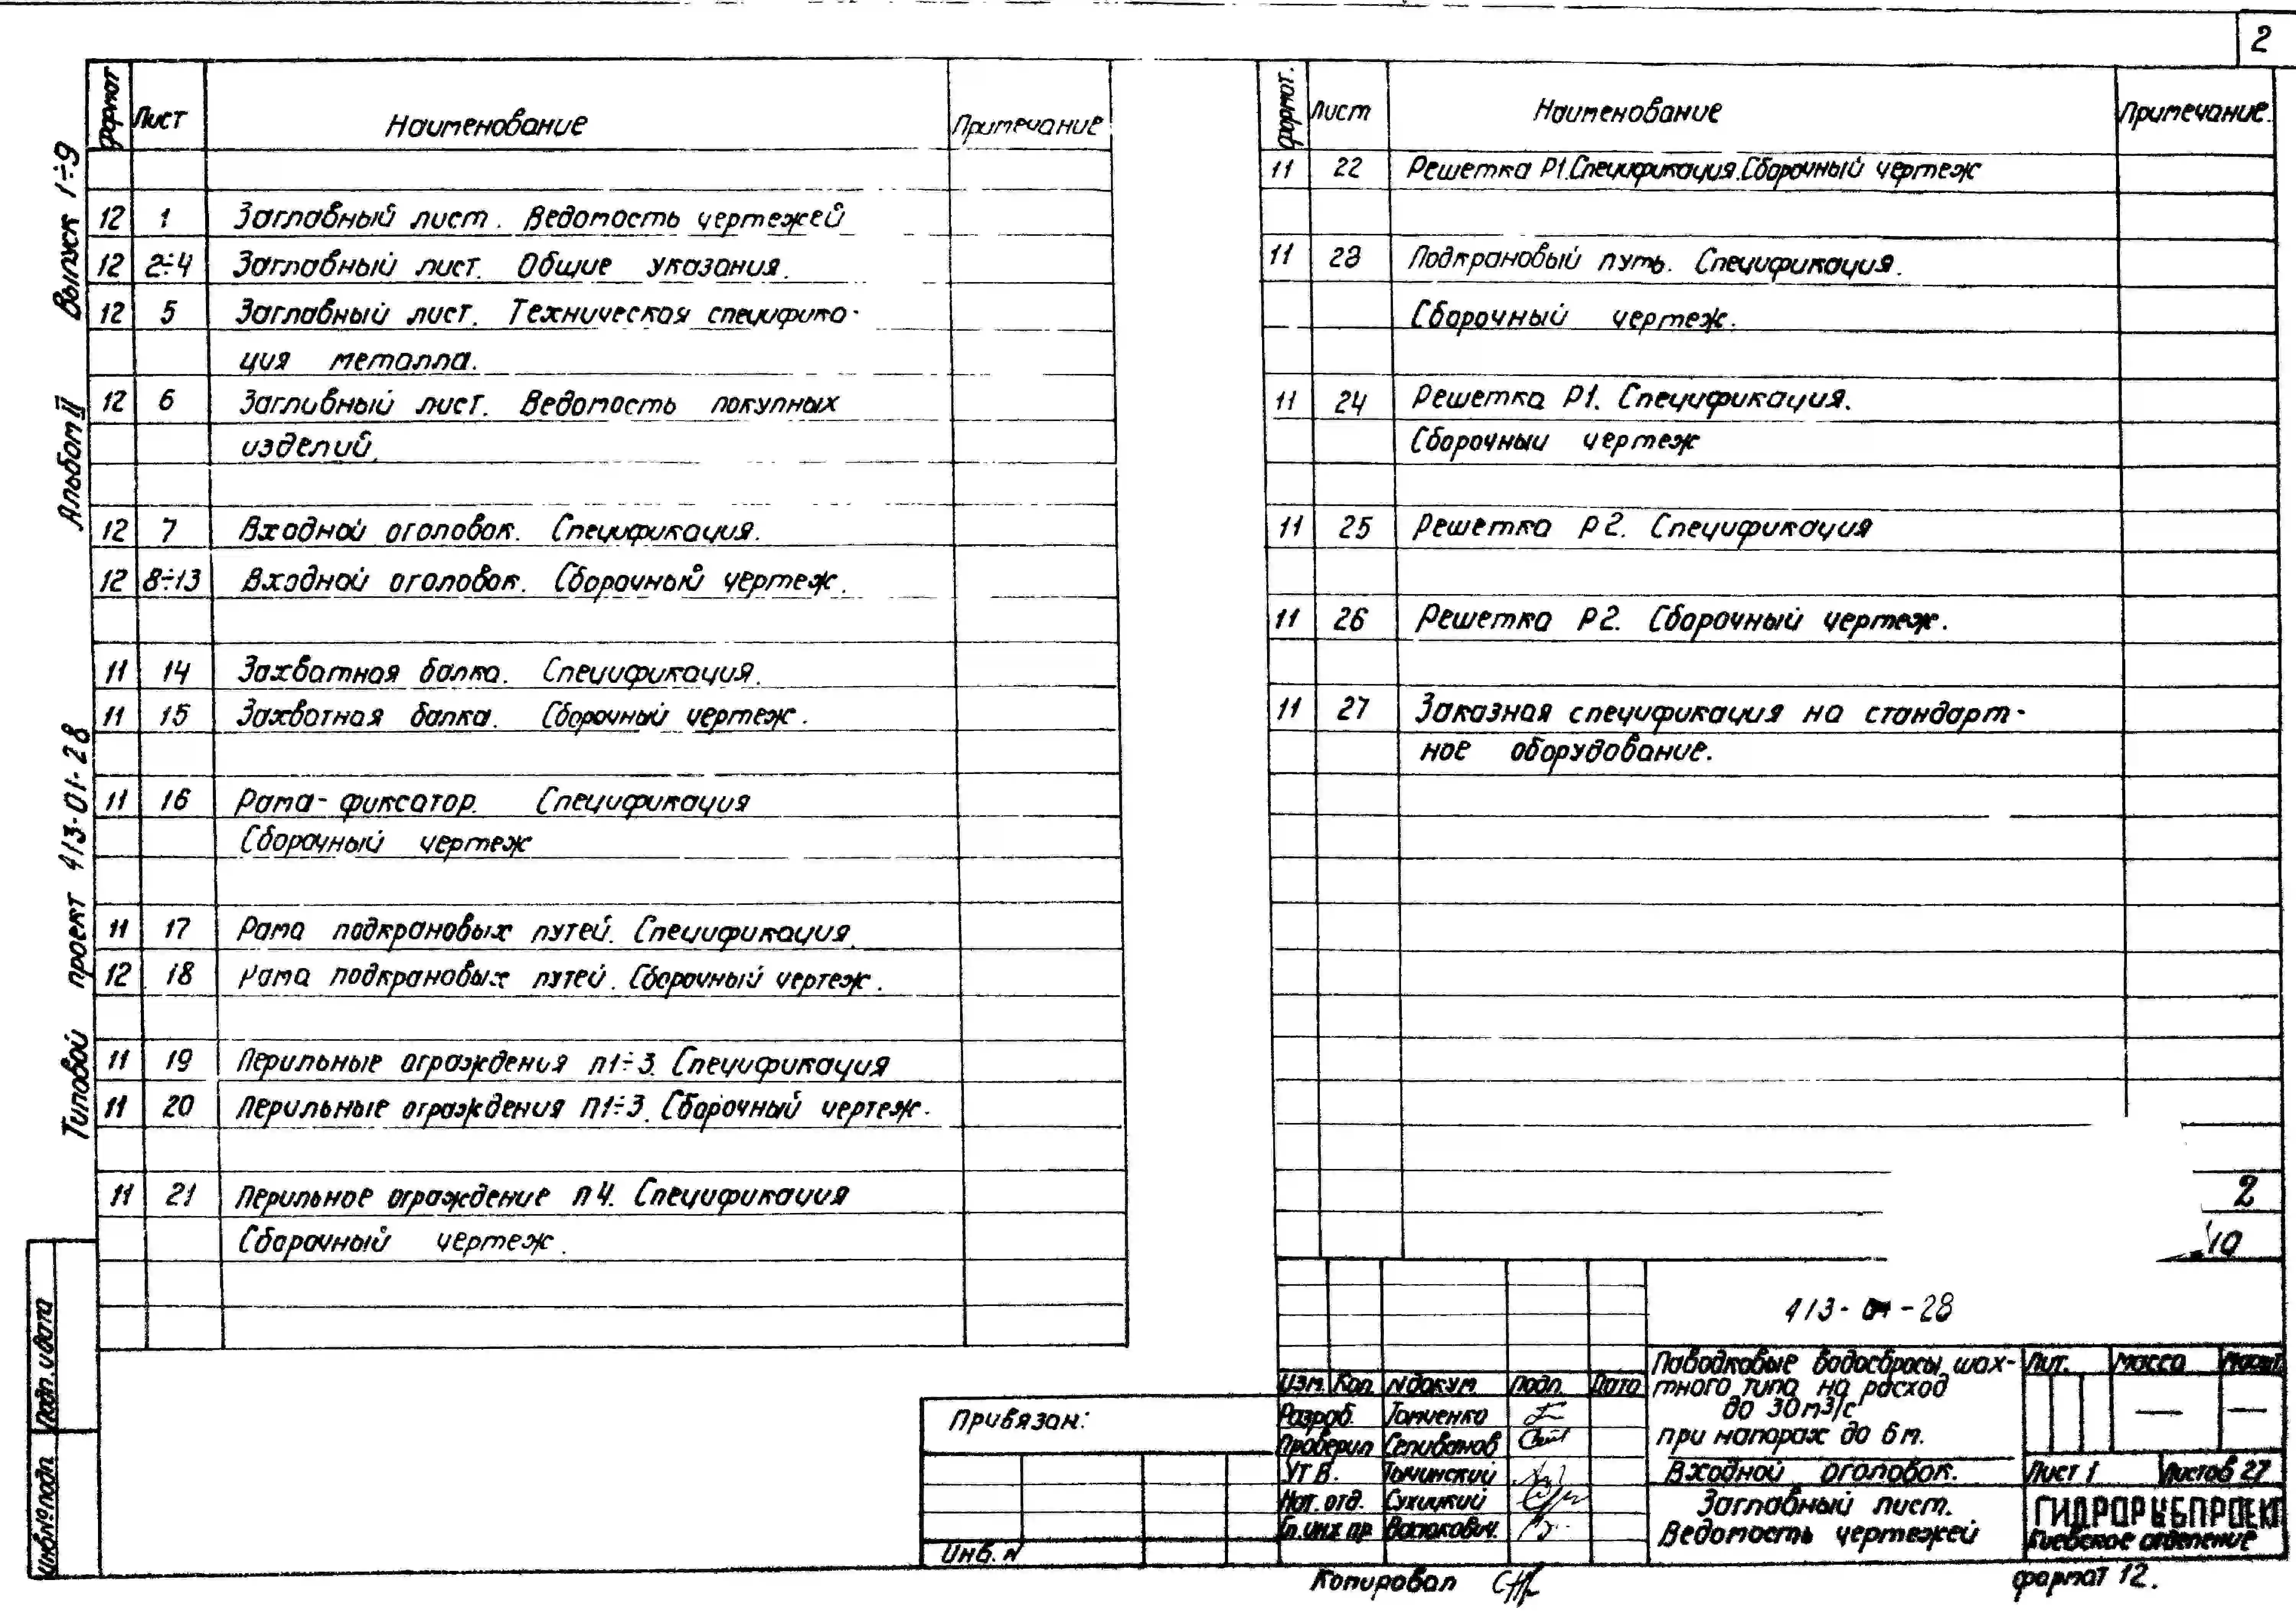 2
Формат Лист Наименование Примечание
12 1 Заглавный лист. Ведомость чертежей
12 2÷4 Заглавный лист. Общие указания.
12 5 Заглавный лист. Техническая специфика-
ция металла.
12 6 Заглавный лист. Ведомость покупных
изделий.
12 7 Входной оголовок. Спецификация.
12 8÷13 Входной оголовок. Сборочный чертеж.
11 14 Захватная балка. Спецификация.
11 15 Захватная балка. Сборочный чертеж.
11 16 Рама-фиксатор. Спецификация
Сборочный чертеж
11 17 Рама подкрановых путей. Спецификация.
12 18 Рама подкрановых путей. Сборочный чертеж.
11 19 Перильные ограждения П1÷3. Спецификация
11 20 Перильные ограждения П1÷3. Сборочный чертеж.
11 21 Перильное ограждение П4. Спецификация
Сборочный чертеж.
Формат. Лист Наименование Примечание.
11 22 Решетка Р1. Спецификация. Сборочный чертеж
11 23 Подкрановый путь. Спецификация.
Сборочный чертеж.
11 24 Решетка Р1. Спецификация.
Сборочный чертеж
11 25 Решетка Р2. Спецификация
11 26 Решетка Р2. Сборочный чертеж.
11 27 Заказная спецификация на стандарт-
ное оборудование.
2
10
Типовой проект 413-01-28 Альбом II Выпуск 1÷9
Подп. и дата
Инв.№ подл.
Привязан:
Инв. N
413-01-28
Изм. Кол. N докум. Подп. Дата
Разраб.
Проверил Селиванов
Утв.
Нач. отд. Сухицкий
Гл. инж. пр.
Паводковые водосбросы шах-
тного типа на расход
до 30 м3/с
при напорах до 6 м.
Входной оголовок.
Заглавный лист.
Ведомость чертежей
Лит. Масса Масшт.
— —
Лист 1 Листов 27
ГИПРОРЫБПРОЕКТ
Киевское отделение
Копировал
формат 12.